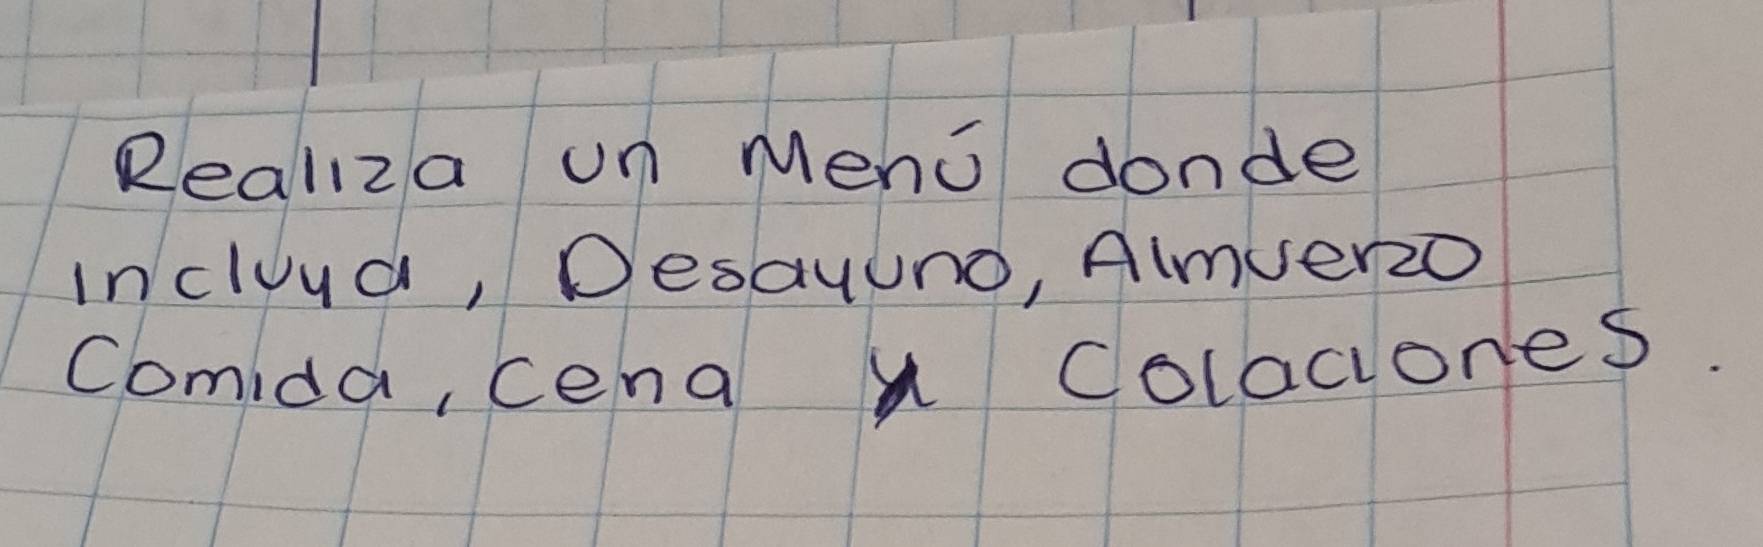 Realiza un Menú donde
incluya, Desayuno, Almuerzo
Comida, cena y Colaciones.